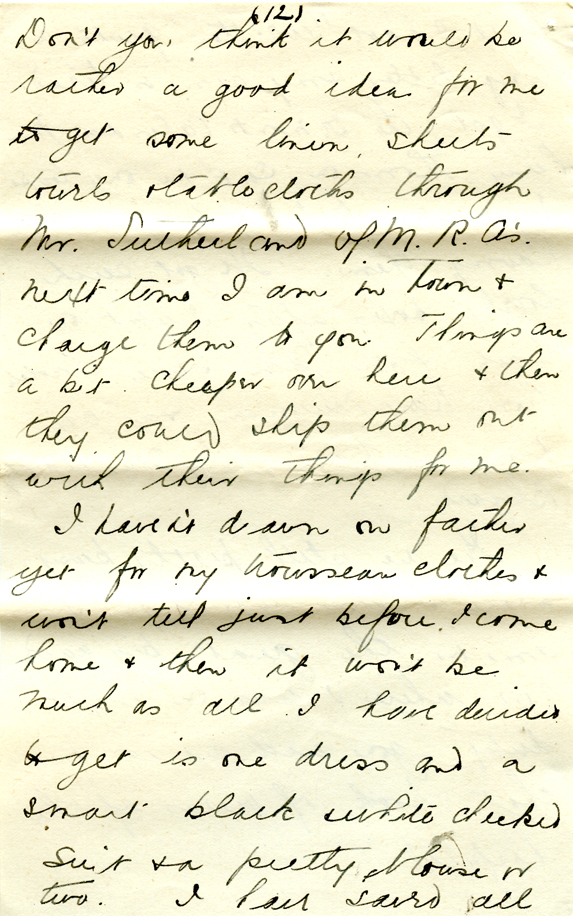 (12)
Don't you think it would be
rather a good idea for me
to get some linen, sheets
towels & tablecloths through
Mr. Sutherland of M. R. A's.
next time I am in town &
charge them to you. Things are
a bit cheaper over here & then
they could ship them out
with their things for me.
I haven't drawn on father
yet for my trousseau clothes &
won't till just before I come
home & then it won't be
much as all I have decided
to get is one dress and a
smart black & white checked
suit & a pretty blouse or
two. I have saved all